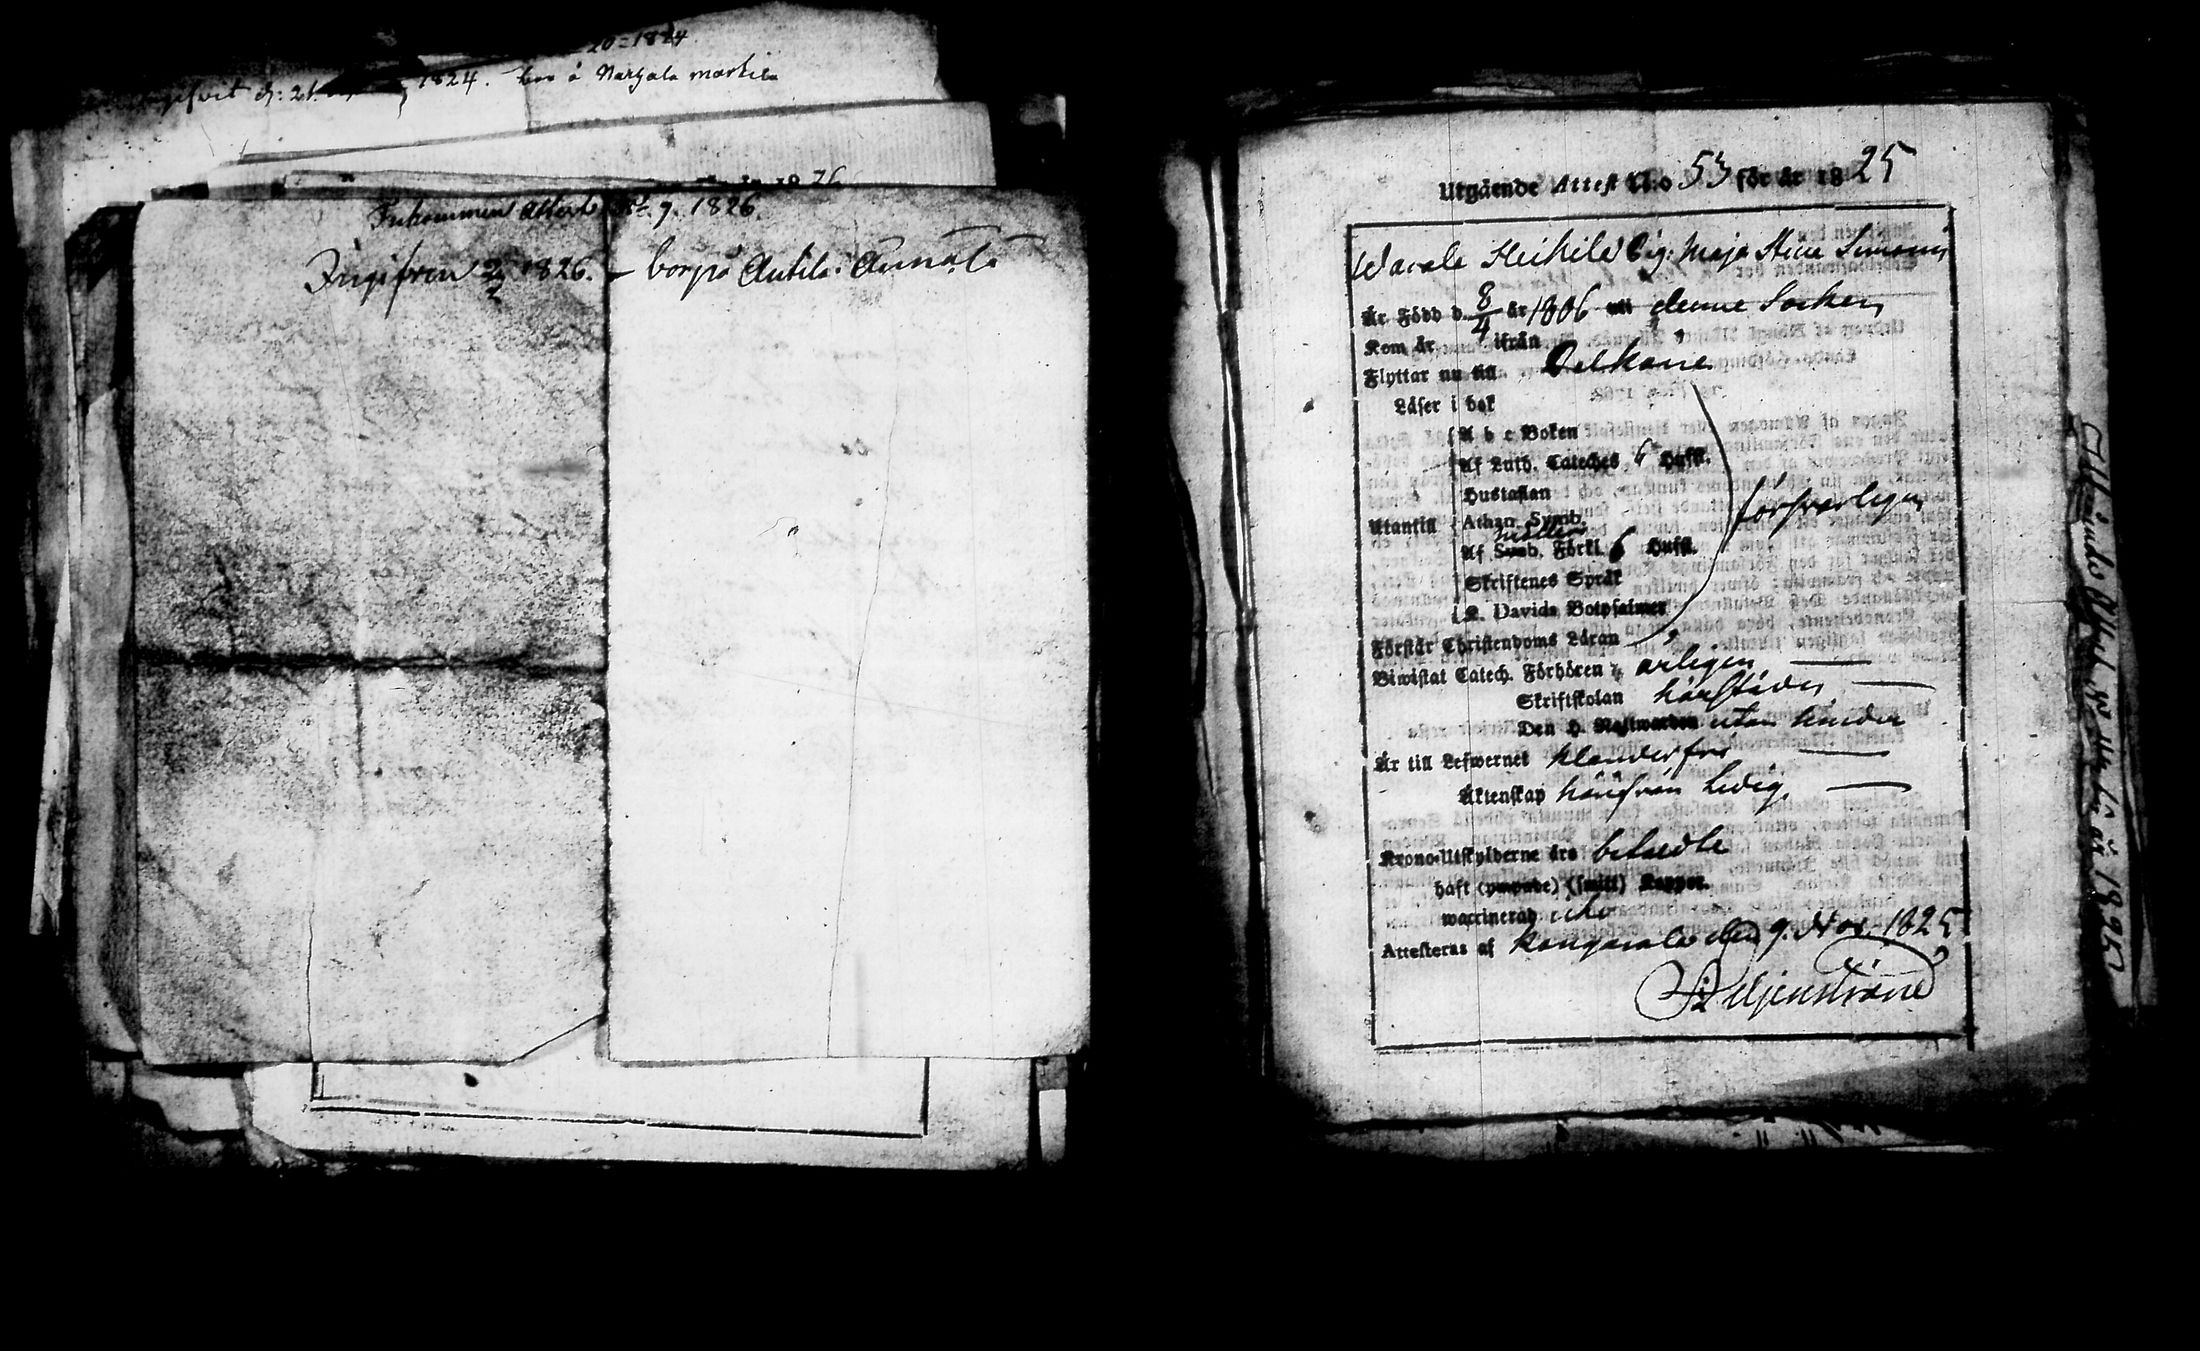 20 = 1824
d: 21. 1824. bor å Narzala markila
Inkommen attest No. 7. 1826.
Ingifven 2/2 1826. – bor på Antila i Aimala
Utgående Attest N:o 53 för år 1825
Wacala Heikila Pig: Maja Stina Simons
Är Född d. 8/4 år 1806 uti denne Socken
Kom år ifrån
Flyttar nu till Pelkäne
Läser i bok
A b c Boken
Af Luth. Cateches 6 Hufst.
Hustaflan
Utantill Athan. Symb. försvarligen
Af Sveb. Förkl. 6 Hufst.
Skriftenes Språk
K. Davids Botpsalmer
Förstår Christendoms Läran
Biwistat Catech. Förhören årligen
Skriftskolan härstädes
Den H. Nattwarden utan hinder
Är till Lefwernet klanderfri
Äktenskap härifrån Ledig
Krono-Utskylderne äro betaldte
haft (ympade) (smitt) Koppor.
waccinerad
Attesteras af Kangasala den 9. Nov. 1825
Utgående Attest No 53 för år 1825